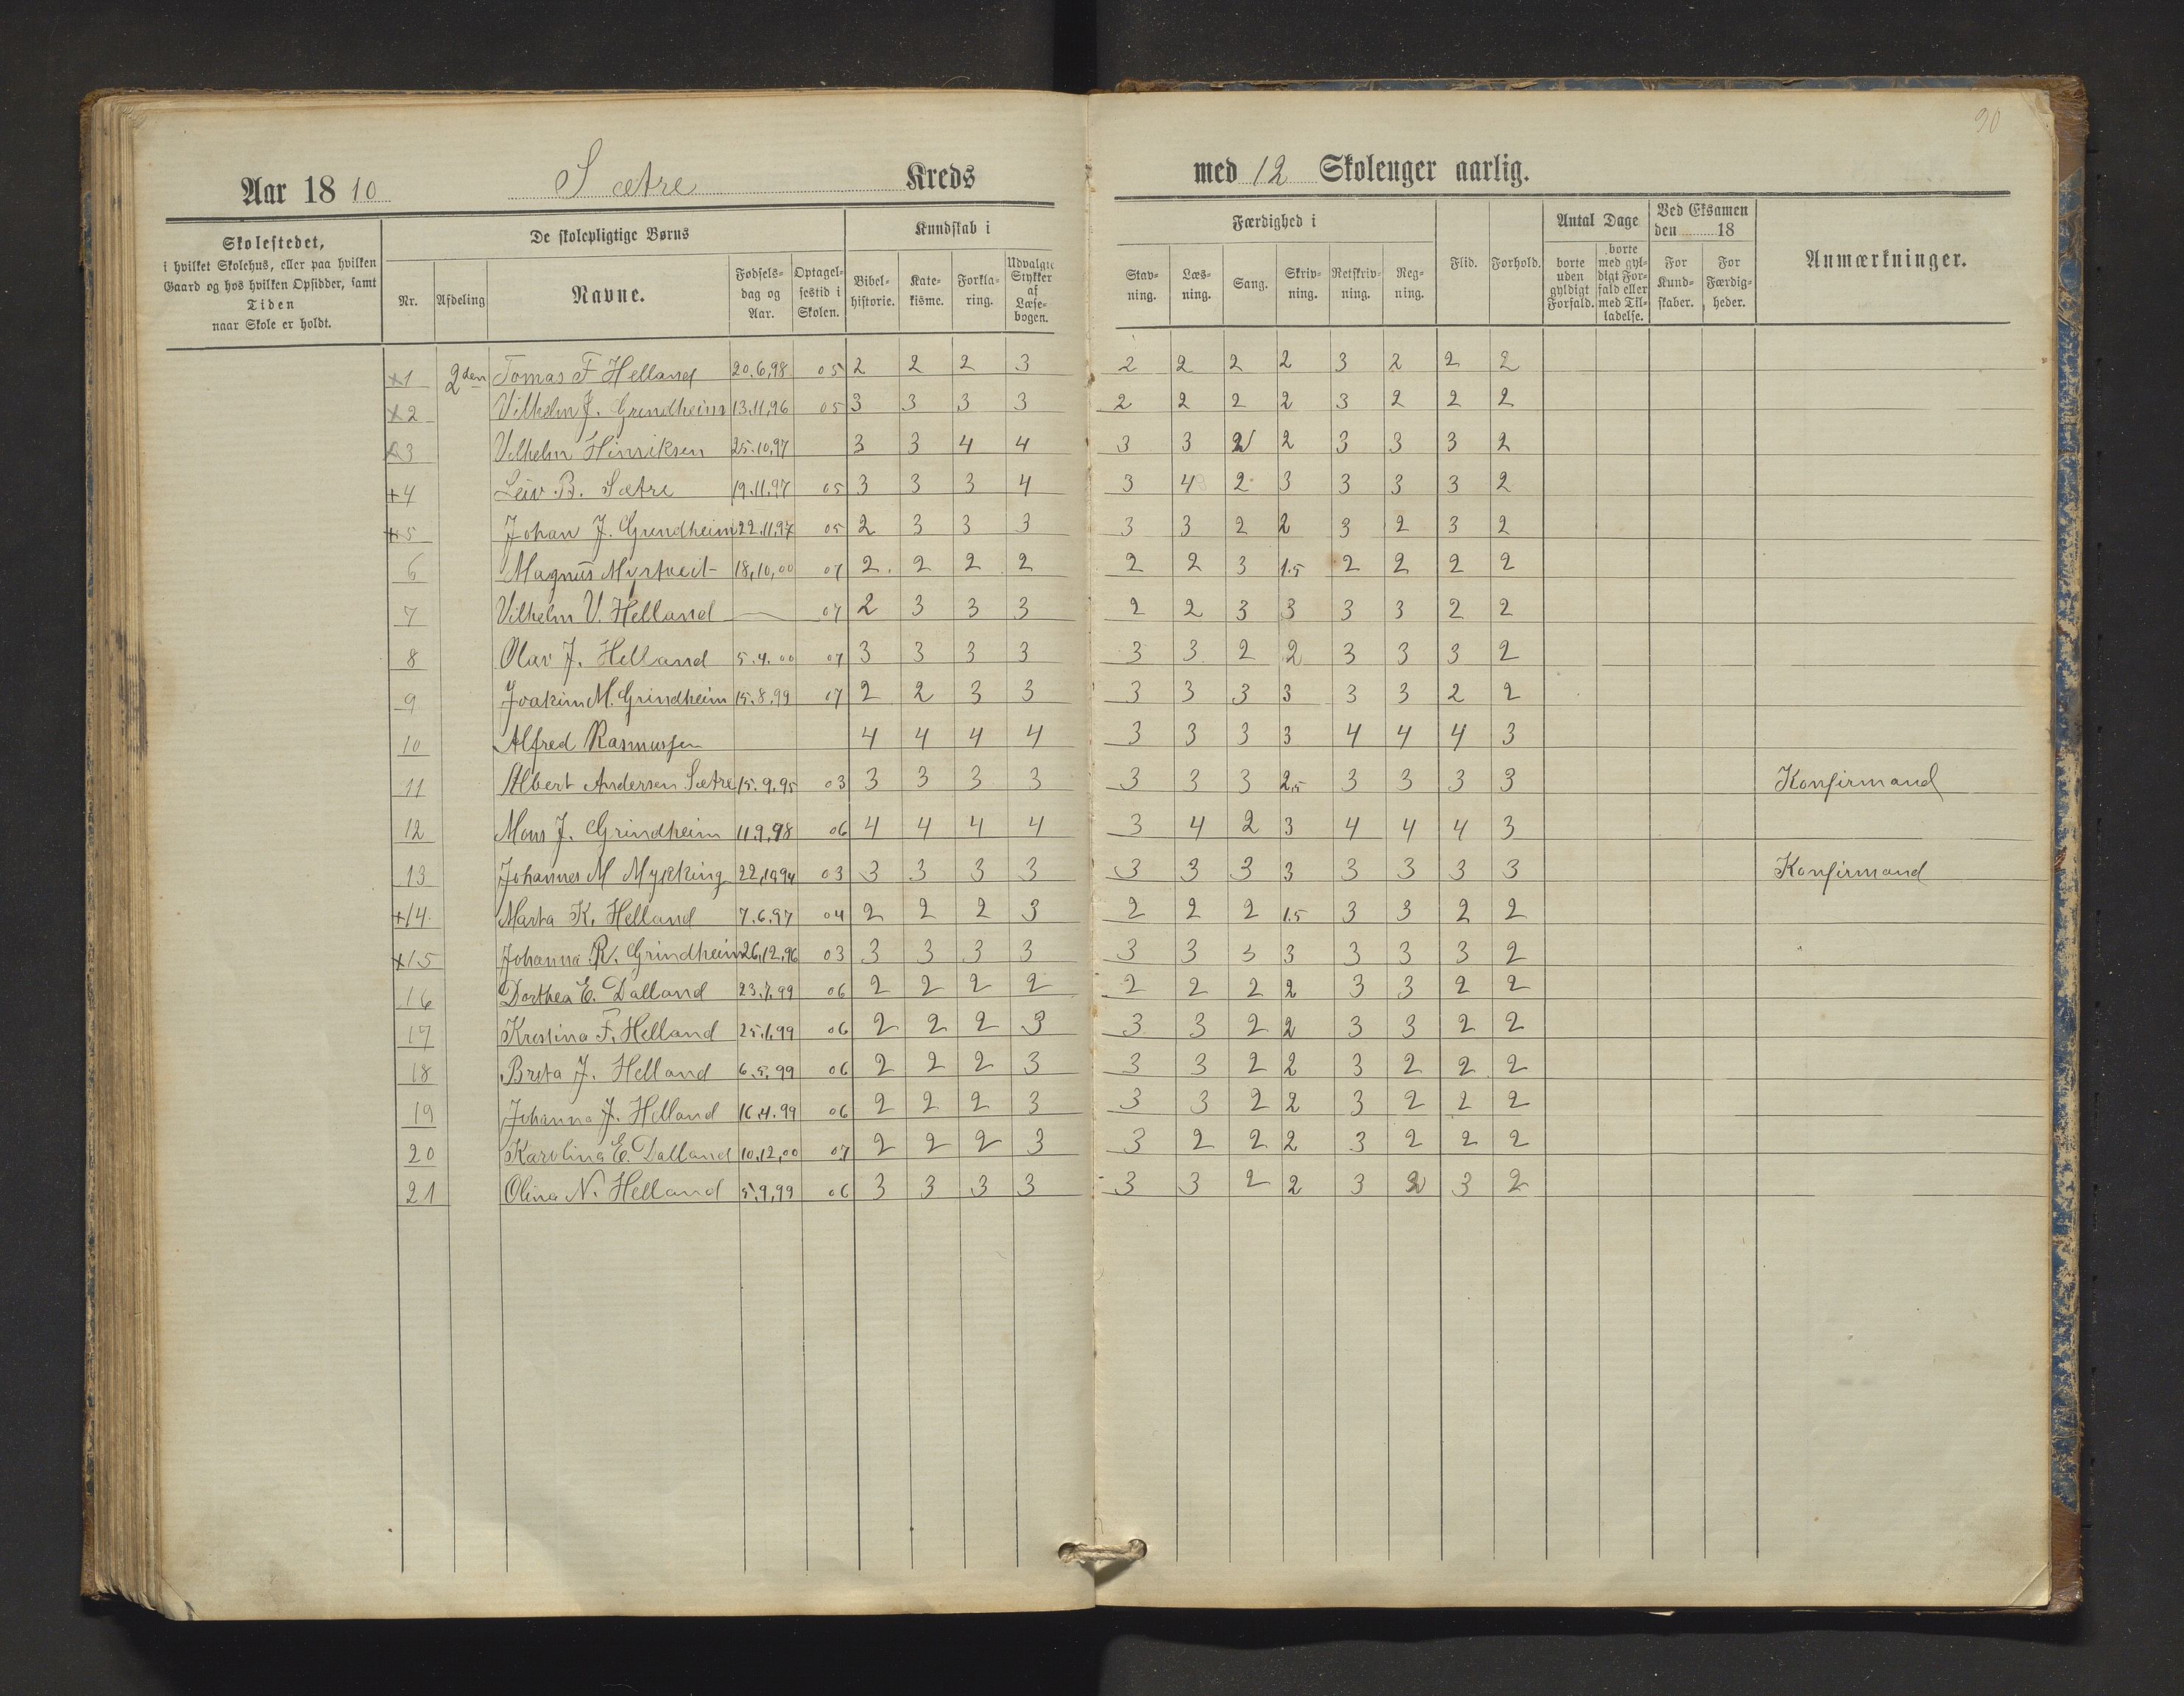 90
Aar 18 10 Sætre Kreds med 12 Skolenger aarlig.
Skolestedet, i hvilket Skolehus, eller paa hvilken Gaard og hos hvilken Opsidder, samt Tiden naar Skole er holdt.
De skolepligtige Børns
Nr. Afdeling Navne. Fødselsdag og Aar. Optagelsestid i Skolen.
Kundskab i
Bibelhistorie. Katekisme. Forklaring. Udvalgte Stykker af Læsebogen.
Færdighed i
Stavning. Læsning. Sang. Skrivning. Retskrivning. Regning.
Flid. Forhold.
Antal Dage
borte uden gyldigt Forfald. borte med gyldigt Forfald eller med Tilladelse.
Ved Eksamen den 18
For Kundskaber. For Færdigheder.
Anmærkninger.
x1 2den Tomas F Helland 20.6,98 05 2 2 2 3 2 2 2 2 3 2 2 2
x2 Vilhelm J. Grindheim 13.11,96 05 3 3 3 3 2 2 2 2 3 2 2 2
3 Vilhelm Hinriksen 25.10,97 3 3 4 4 3 3 2 2 3 3 3 2
+4 Leiv B. Sætre 19.11.97 05 3 3 3 4 3 4 2 3 3 3 3 2
+5 Johan J. Grindheim 22.11,97 05 2 3 3 3 3 3 2 2 3 2 3 2
6 Magnus Myrtveit 18,10,00 07 2 2 2 2 2 2 3 1.5 2 2 2 2
7 Vilhelm V. Helland — 07 2 3 3 3 2 2 3 3 3 3 2 2
8 Olav J. Helland 5.4.00 07 3 3 3 3 3 3 2 2 3 3 3 2
9 Joakim M. Grindheim 15.8,99 07 2 2 3 3 3 3 3 3 3 3 2 2
10 Alfred Rasmussen 4 4 4 4 3 3 3 3 4 4 4 3
11 Albert Andersen Sætre 15.9.95 03 3 3 3 3 3 3 3 2,5 3 3 3 3 Konfirmand
12 Mons J. Grindheim 11.9,98 06 4 4 4 4 3 4 2 3 4 4 4 3
13 Johannes M Mykking 22,10,94 03 3 3 3 3 3 3 3 3 3 3 3 3 Konfirmand
+14. Marta K. Helland 7.6.97 04 2 2 2 3 2 2 2 1.5 3 3 2 2
x15 Johanna R. Grindheim 26,12,96 03 3 3 3 3 3 3 3 3 3 3 3 2
16 Dorthea E. Dalland 23.7.99 06 2 2 2 2 2 2 2 2 3 3 2 2
17 Krestina F. Helland 25.1.99 06 2 2 2 3 3 3 2 2 3 3 2 2
18 Breta J. Helland 6.5.99 06 2 2 2 3 3 3 2 2 3 2 2 2
19 Johanna J. Helland 16.4.99 06 2 2 2 3 3 3 2 2 3 2 2 2
20 Karolina E. Dalland 10,12,00 07 2 2 2 3 3 2 2 2 3 2 2 2
21 Olina N. Helland 5.9,99 06 3 3 3 3 3 3 2 2 3 2 3 2